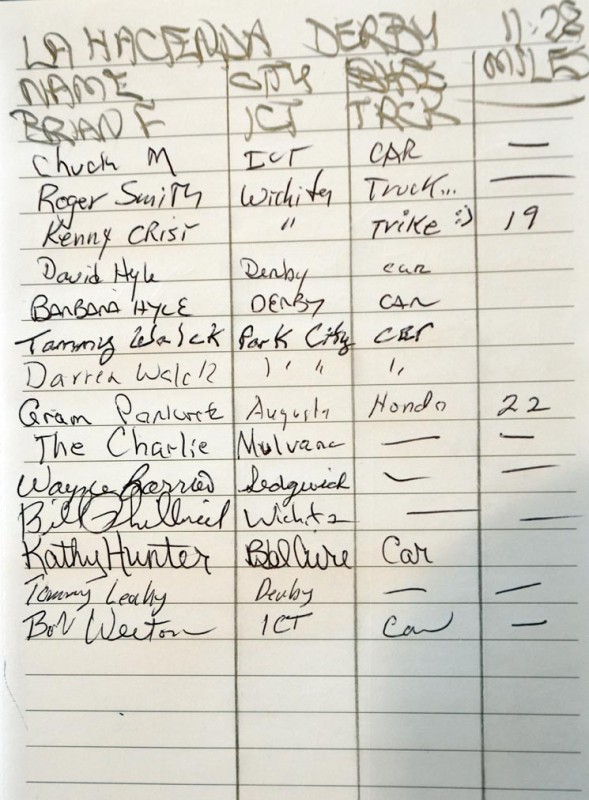 LA HACIENDA DERBY 11-28
NAME CITY BIKE MILES
BRIAN F ICT TRCK —
Chuck M ICT CAR —
Roger Smith Wichita Truck... —
Kenny CRIST " TRIKE :) 19
David Hyle Derby car
BARBARA HYLE DERBY CAR
Tammy Walck Park City car
Darren Walck " " "
Gram Augusta Honda 22
The Charlie Mulvane — —
Wayne Sedgwick — —
Bill Wichita — —
Kathy Hunter Bel Aire Car
Tommy Leahy Derby — —
Bob ICT Car —